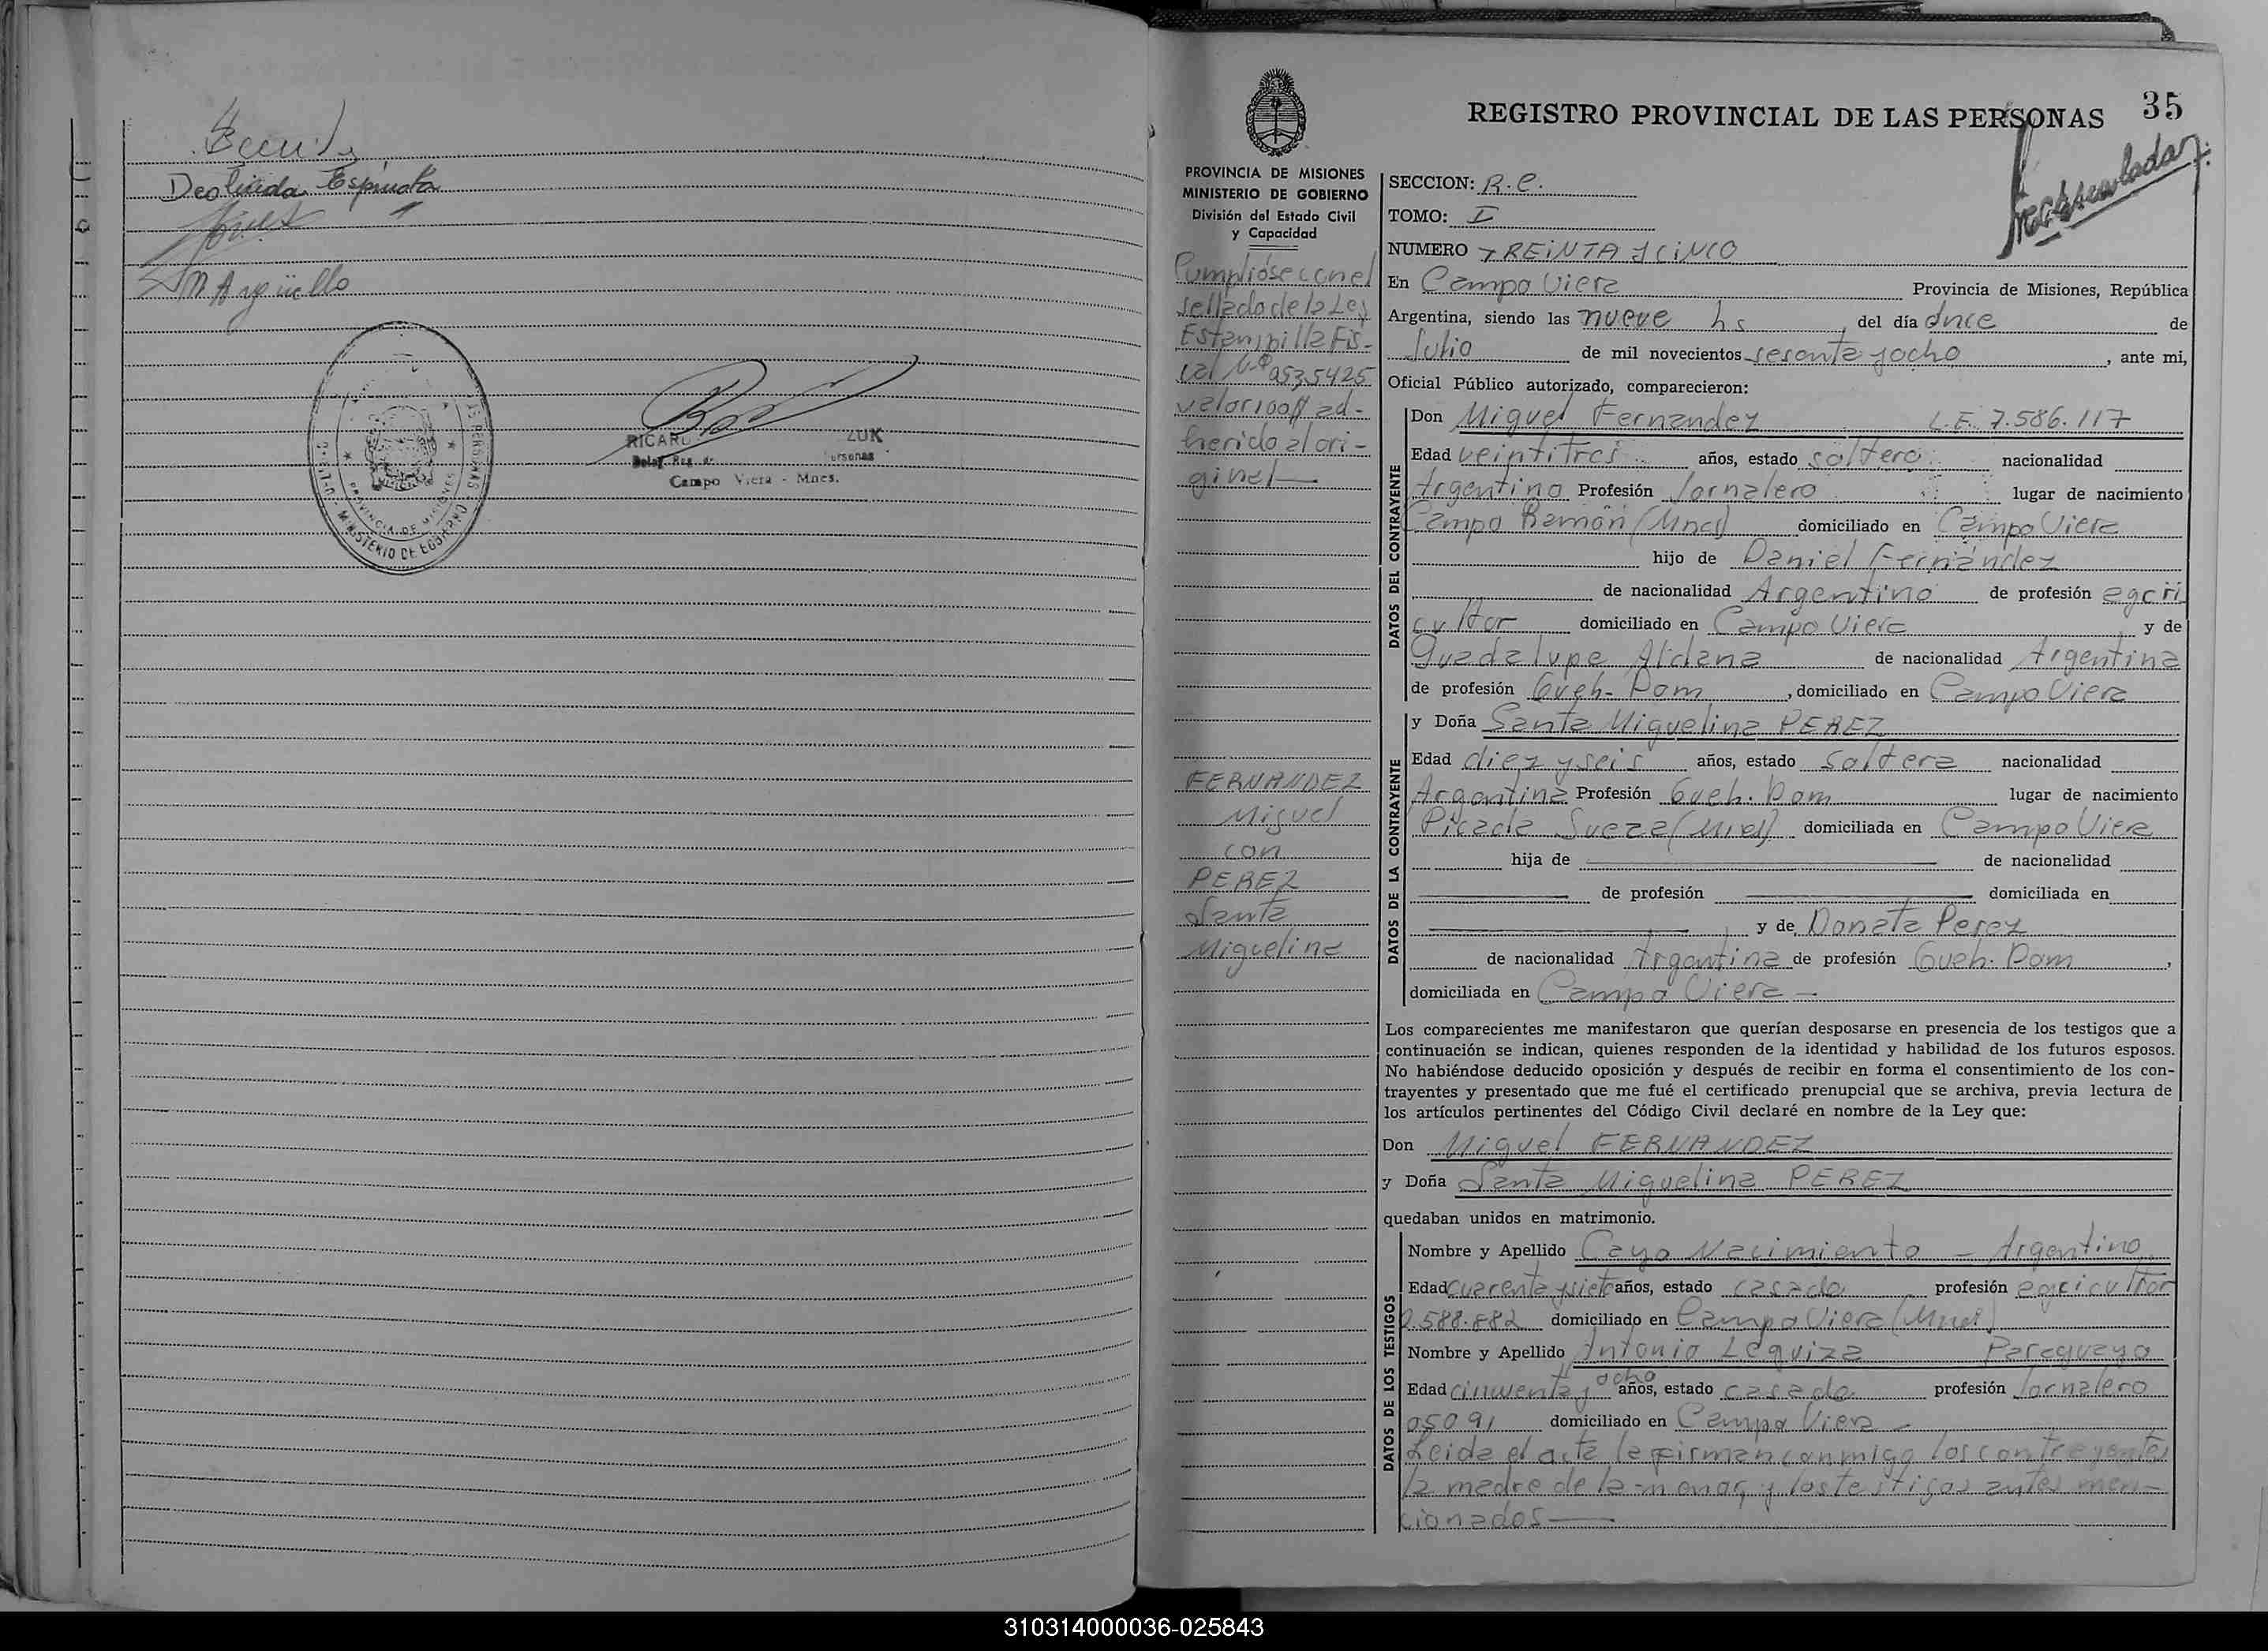 Deolinda Espinota
M Argüello
RICAR ZUK
Campo Viera - Mnes.
PROVINCIA DE MISIONES
MINISTERIO DE GOBIERNO
35
REGISTRO PROVINCIAL DE LAS PERSONAS
PROVINCIA DE MISIONES
MINISTERIO DE GOBIERNO
División del Estado Civil
y Capacidad
Cumplióse con el
sellado de la Ley
Estampilla Fis-
cal Nº 0535425
valor 100 ad-
herido al ori-
ginal
FERNANDEZ
Miguel
con
PEREZ
Santa
Miguelina
SECCION: R.C.
TOMO: I
NUMERO TREINTA Y CINCO
En Campo Viera Provincia de Misiones, República
Argentina, siendo las nueve hs, del día once de
Julio de mil novecientos sesenta y ocho, ante mi,
Oficial Público autorizado, comparecieron:
DATOS DEL CONTRAYENTE
Don Miguel Fernandez L.E. 7.586.117
Edad veintitres años, estado soltero nacionalidad
Argentino Profesión Jornalero lugar de nacimiento
Campo Ramón (Mnes) domiciliado en Campo Viera
hijo de Daniel Fernández
de nacionalidad Argentino de profesión agri
cultor domiciliado en Campo Viera y de
Guadalupe Aldana de nacionalidad Argentina
de profesión Queh. Dom, domiciliado en Campo Viera
DATOS DE LA CONTRAYENTE
y Doña Santa Miguelina PEREZ
Edad diez y seis años, estado soltera nacionalidad
Argentina Profesión Queh. Dom lugar de nacimiento
Picada Sueza (Mnes) domiciliada en Campo Viera
hija de de nacionalidad
de profesión domiciliada en
y de Donata Perez
de nacionalidad Argentina de profesión Queh. Dom,
domiciliada en Campo Viera -
Los comparecientes me manifestaron que querían desposarse en presencia de los testigos que a
continuación se indican, quienes responden de la identidad y habilidad de los futuros esposos.
No habiéndose deducido oposición y después de recibir en forma el consentimiento de los con-
trayentes y presentado que me fué el certificado prenupcial que se archiva, previa lectura de
los artículos pertinentes del Código Civil declaré en nombre de la Ley que:
Don Miguel FERNANDEZ
y Doña Santa Miguelina PEREZ
quedaban unidos en matrimonio.
DATOS DE LOS TESTIGOS
Nombre y Apellido Cayo Nacimiento - Argentino
Edad cuarenta y siete años, estado casado profesión agricultor
2.588.882 domiciliado en Campo Viera (Mnes)
Nombre y Apellido Antonio Leguiza Paraguayo
Edad cincuenta y ocho años, estado casado profesión Jornalero
05091 domiciliado en Campo Viera -
Leida el acta la firman conmigo los contrayentes
la madre de la menor, y los testigos antes men-
cionados
310314000036-025843